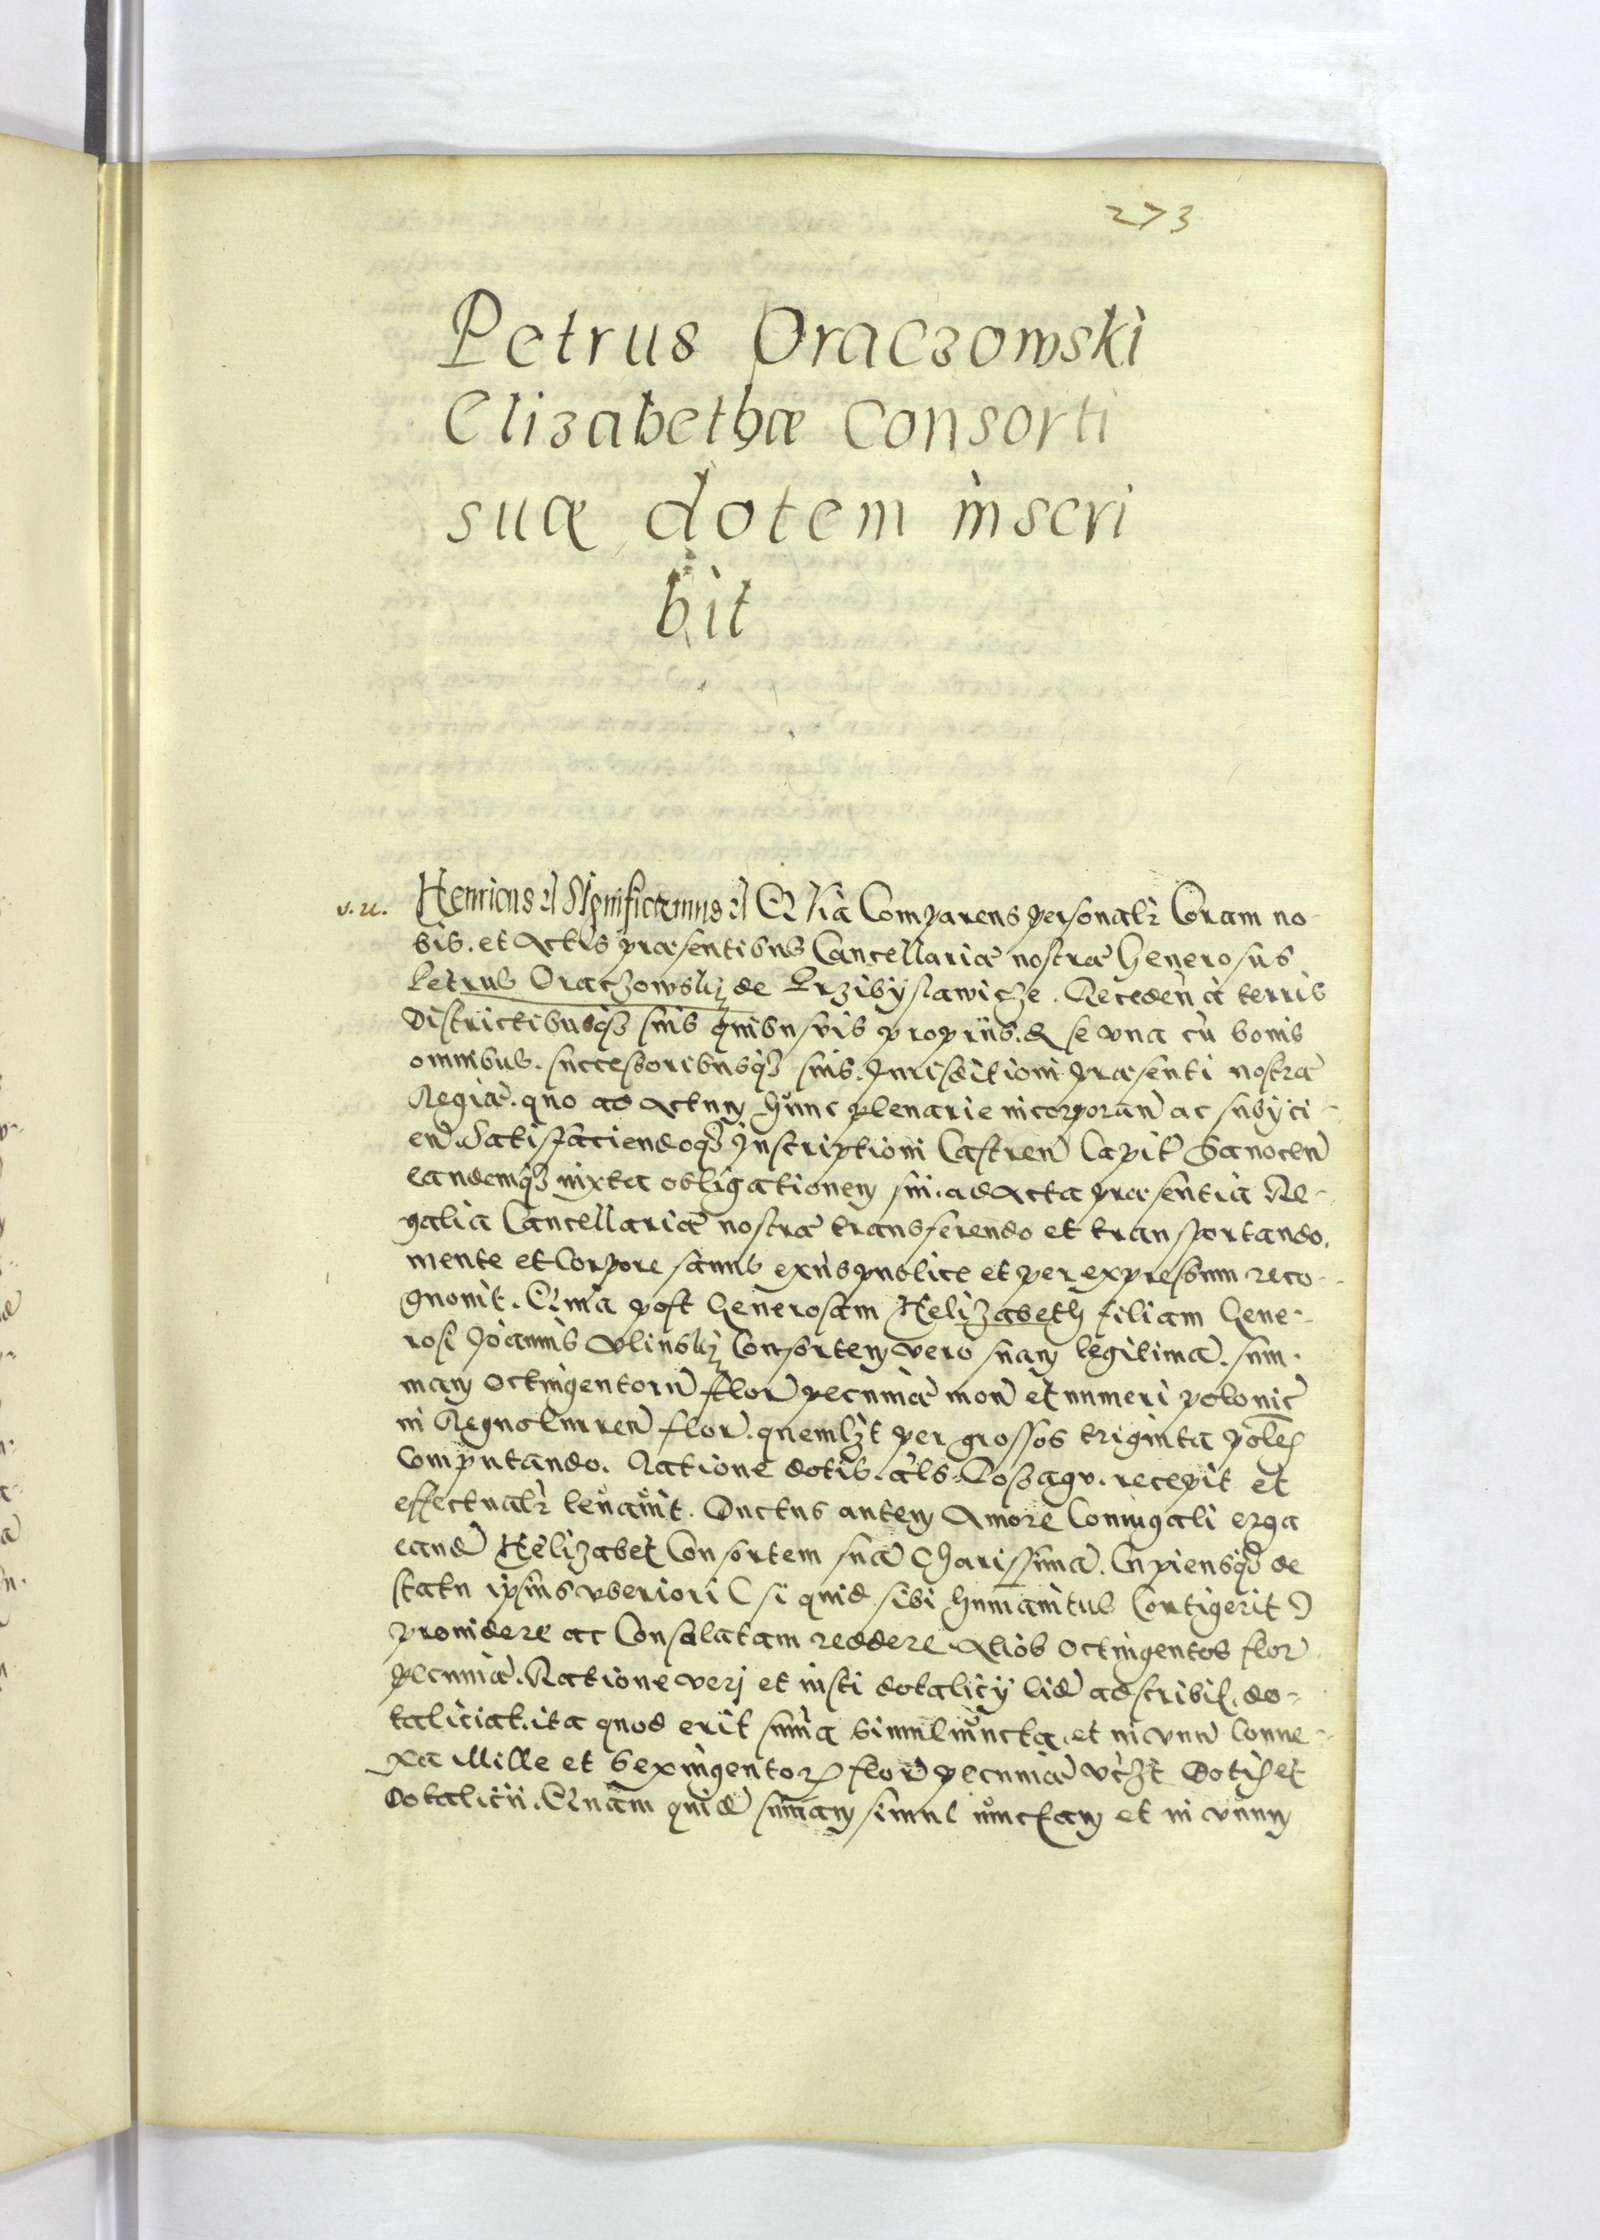 273
Petrus Oraczowski
Elizabethæ Consorti
suæ dotem inscri
bit
v. u.
Henricus Significamus QVia Comparens personalr Coram no-
bis. et Actis præsentibus Cancellariæ nostræ Generosus
Petrus Oraczowskj de Przibyslawicze. Receden̄ à terris
Districtibusq3 suis quibusuis proprijs. & se vna cū bonis
omnibus. successoribusq3 suis. Jurisditioni præsenti nostræ
Regiæ. quo ad Actum hunc plenarie incorporan̄ ac subijci-
en̄. Satisfaciendoq3 Jnscriptioni Castren̄ Capit Sanocen̄
eandemq3 iuxta obligationem sui. ad Acta præsentia Re-
galia Cancellariæ nostræ transferendo et transportando.
mente et Corpore sanus exn̄s publice et per expressum reco-
gnouit. Quia post Generosam Helizabeth filiam Gene-
rosi Joannis Vlinskj Consortem vero suam legitimā. sum-
mam Octingentorū flor pecuniæ mon̄ et numeri polonic̄
in Regno Curren̄ flor. quemlz̄t per grossos triginta pol̄es
Computando. Ratione dotis. als. Poszagu. recepit et
effectualr leuauit. Ductus autem Amore Coniugali erga
eand Helizabet Consortem suā Charissimā. Cupiensq3 de
statu ipsius vberiori (si quid sibi humanitus Contigerit)
prouidere ac Consolatam reddere Alios Octingentos flor
pecuniæ. Ratione verj et iusti dotalicij eid adscribit. do-
taliciat. ita quod erit sum̄a simul iuncta. et in vnū Conne-
xa Mille et Sexingentor flor pecuniæ vcz̄t Dotis et
Dotalicii. Quam quid sum̄am simul iunctam et in vnum